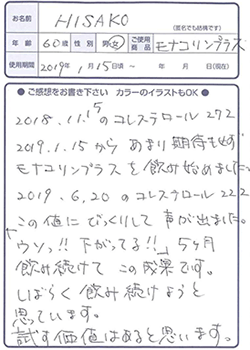 お名前 HISAKO
(匿名でも結構です)
年齢 60歳 性別 男・女 ご使用商品 モナコリンプラス
使用期間 2019年1月15日頃 〜 年 月 日(現在)
● ご感想をお書き下さい カラーのイラストもOK ●
2018.11.15のコレステロール272
2019.1.15から あまり期待もせず
モナコリンプラスを飲み始めました。
2019.6.20のコレステロール222
この値にびっくりして 声が出ました。
「ウソっ!! 下がってる!!」5ヶ月
飲み続けて この成果です。
しばらく飲み続けようと
思っています。
試す価値はあると思います。